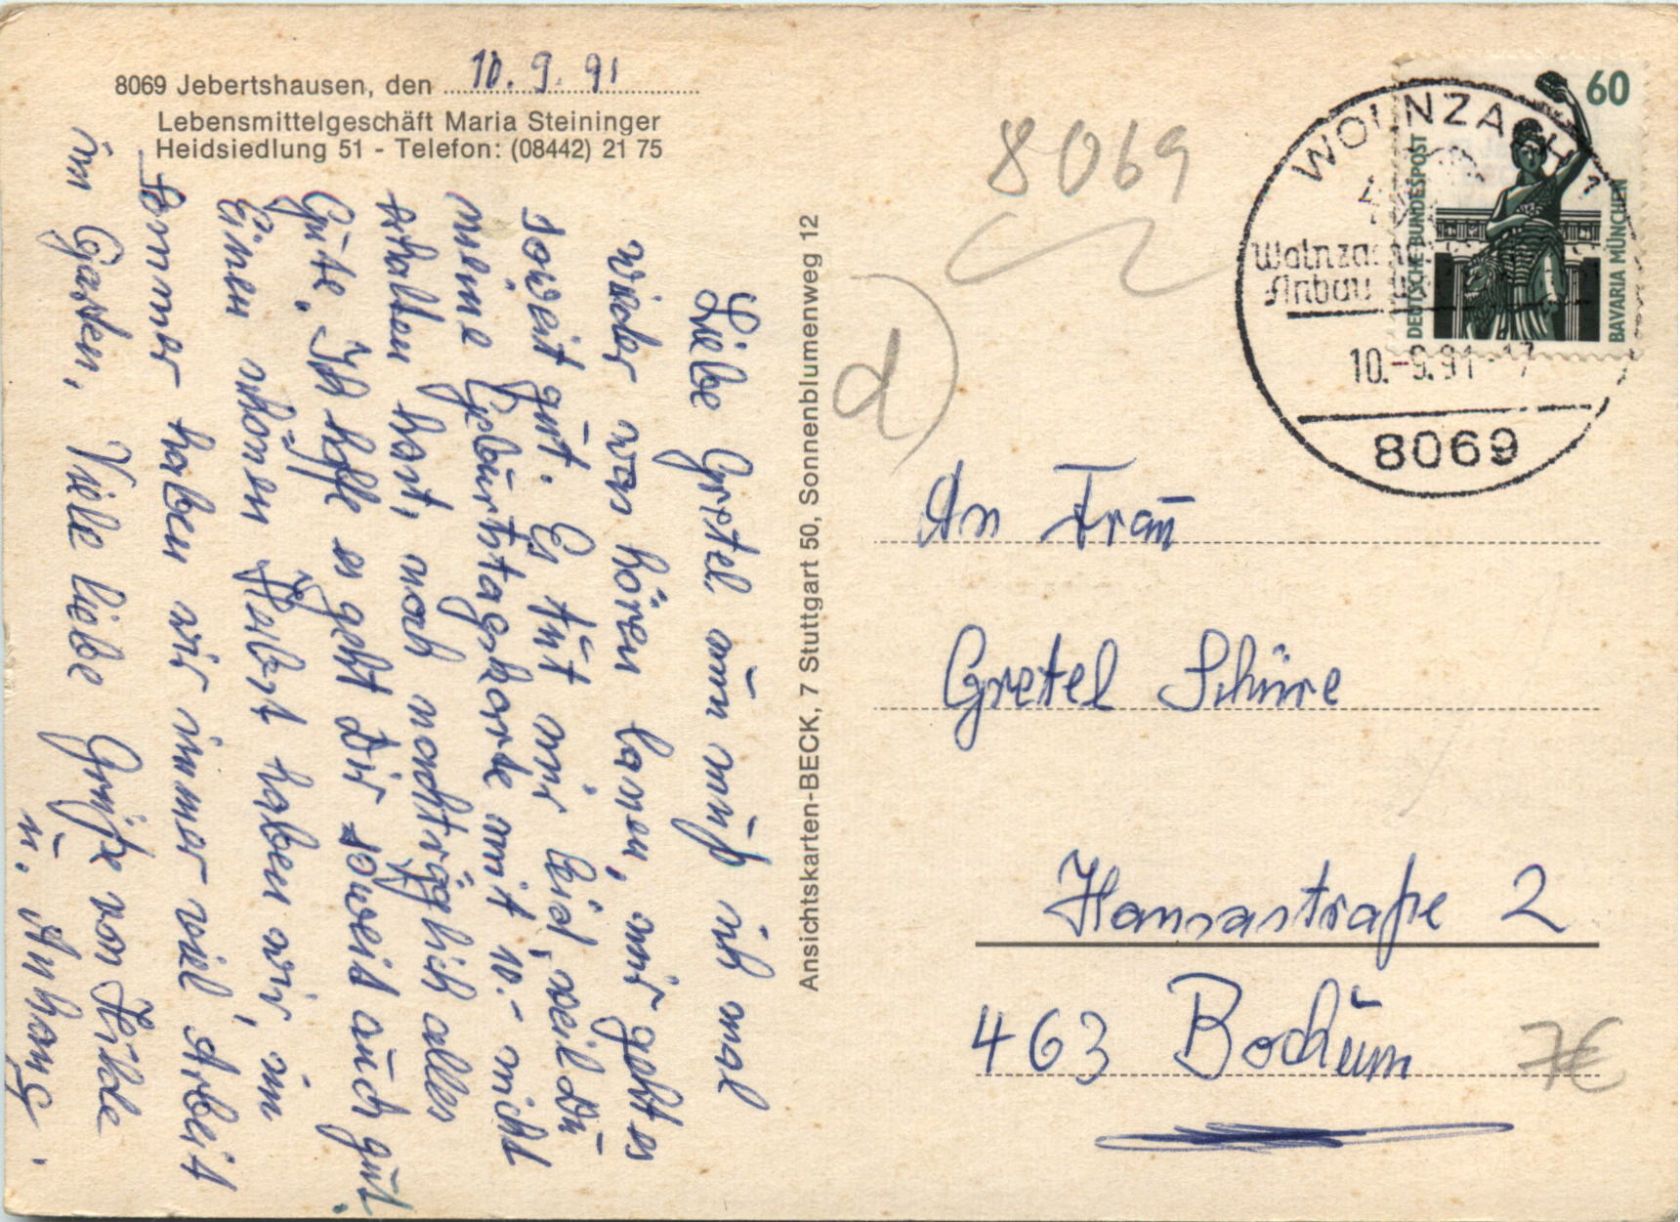 8069 Jebertshausen, den 10.9.91
Lebensmittelgeschäft Maria Steininger
Heidsiedlung 51 - Telefon: (08442) 21 75
Liebe Gretel nun muß ich mal
wieder was hören lassen, mir geht es
soweit gut. Es tut mir leid, weil du
meine Geburtstagskarte mit 10.- nicht
erhalten hast, noch nachträglich alles
Gute. Ich hoffe es geht Dir soweit auch gut.
Einen schönen Herbst haben wir, im
Sommer haben wir immer viel Arbeit
im Garten, Viele liebe Grüße von
u. Anhang.
Ansichtskarten-BECK, 7 Stuttgart 50, Sonnenblumenweg 12
8069
d
60
DEUTSCHE BUNDESPOST
BAVARIA MÜNCHEN
WOLNZACH 1
Wolnzach
Anbau
10.-9.91-17
8069
An Frau
Gretel Schüre
Hansastraße 2
463 Bochum
7€